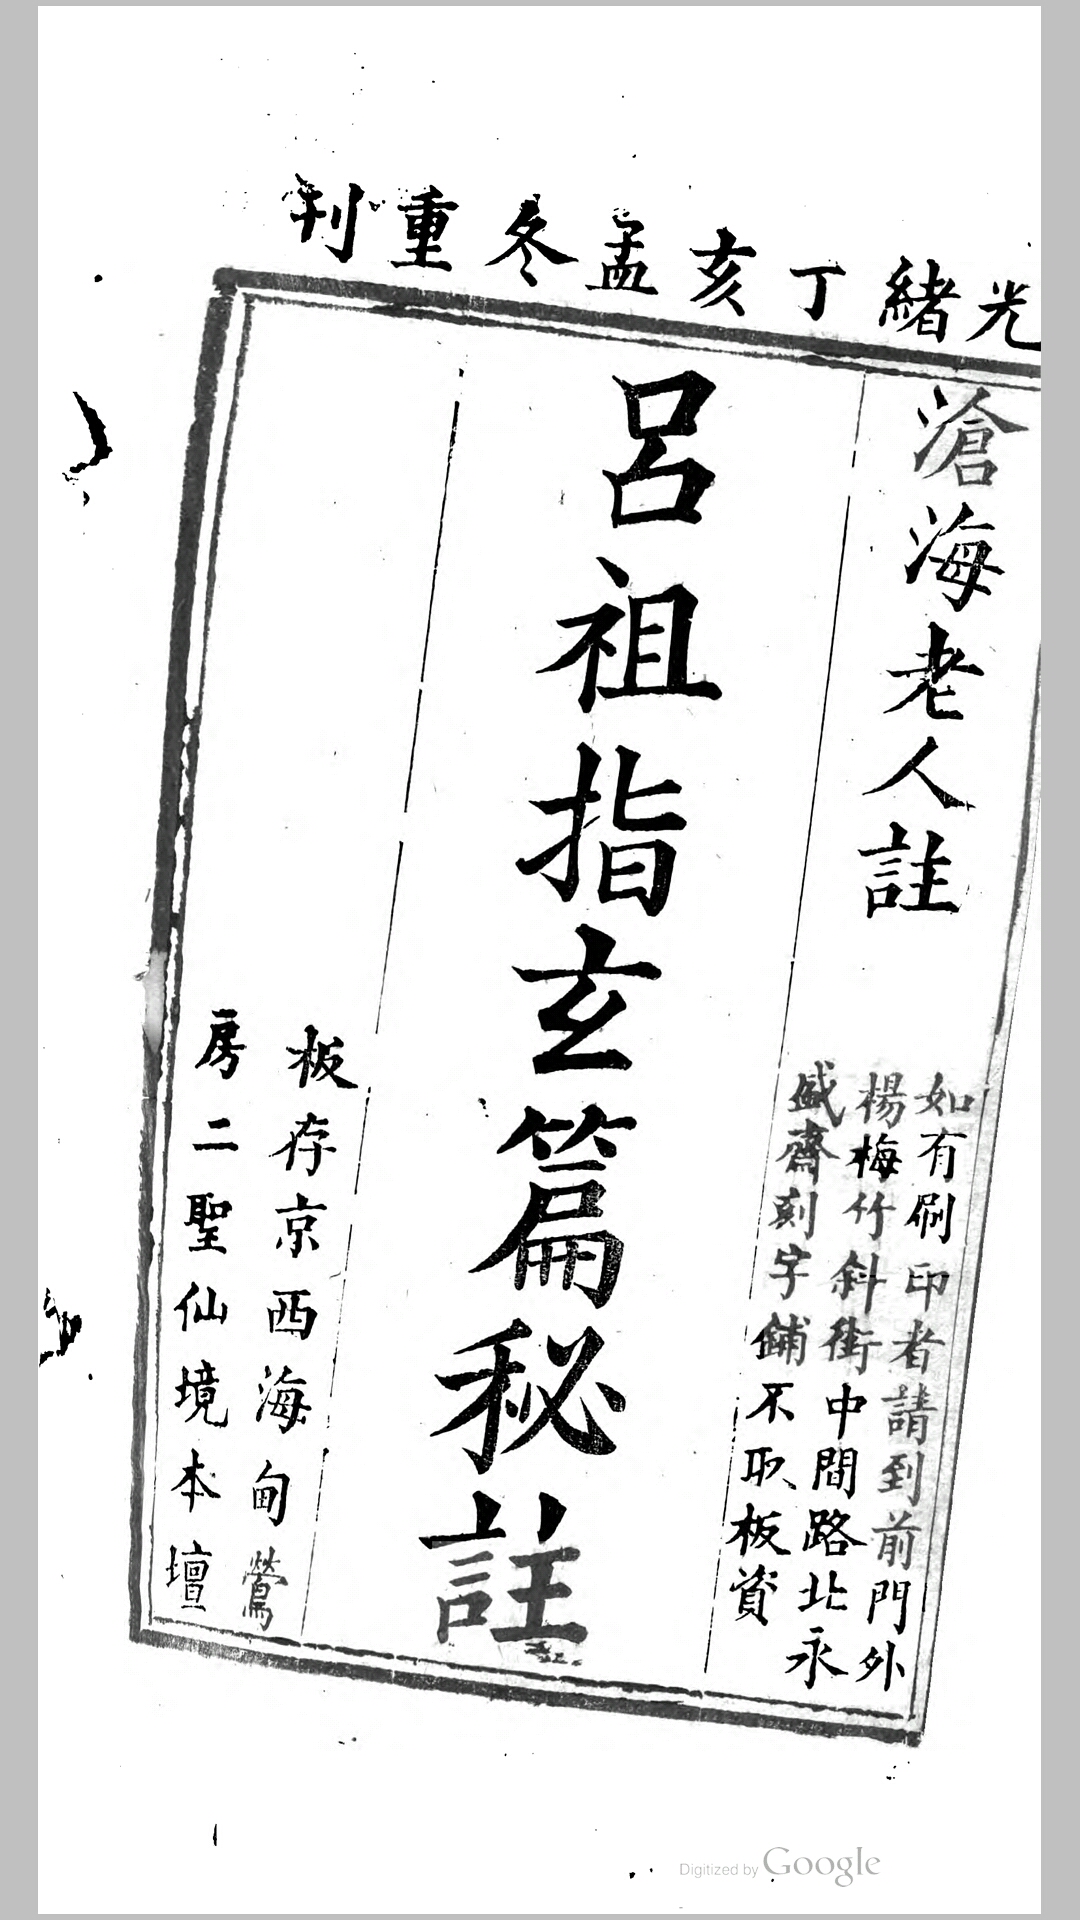 光緒丁亥孟冬重刊
滄海老人註
如有刷印者請到前門外
楊梅竹斜街中間路北永
盛齋刻字鋪不取板資
呂祖指玄篇秘註
板存京西海甸鶯
房二聖仙境本壇
Digitized by Google